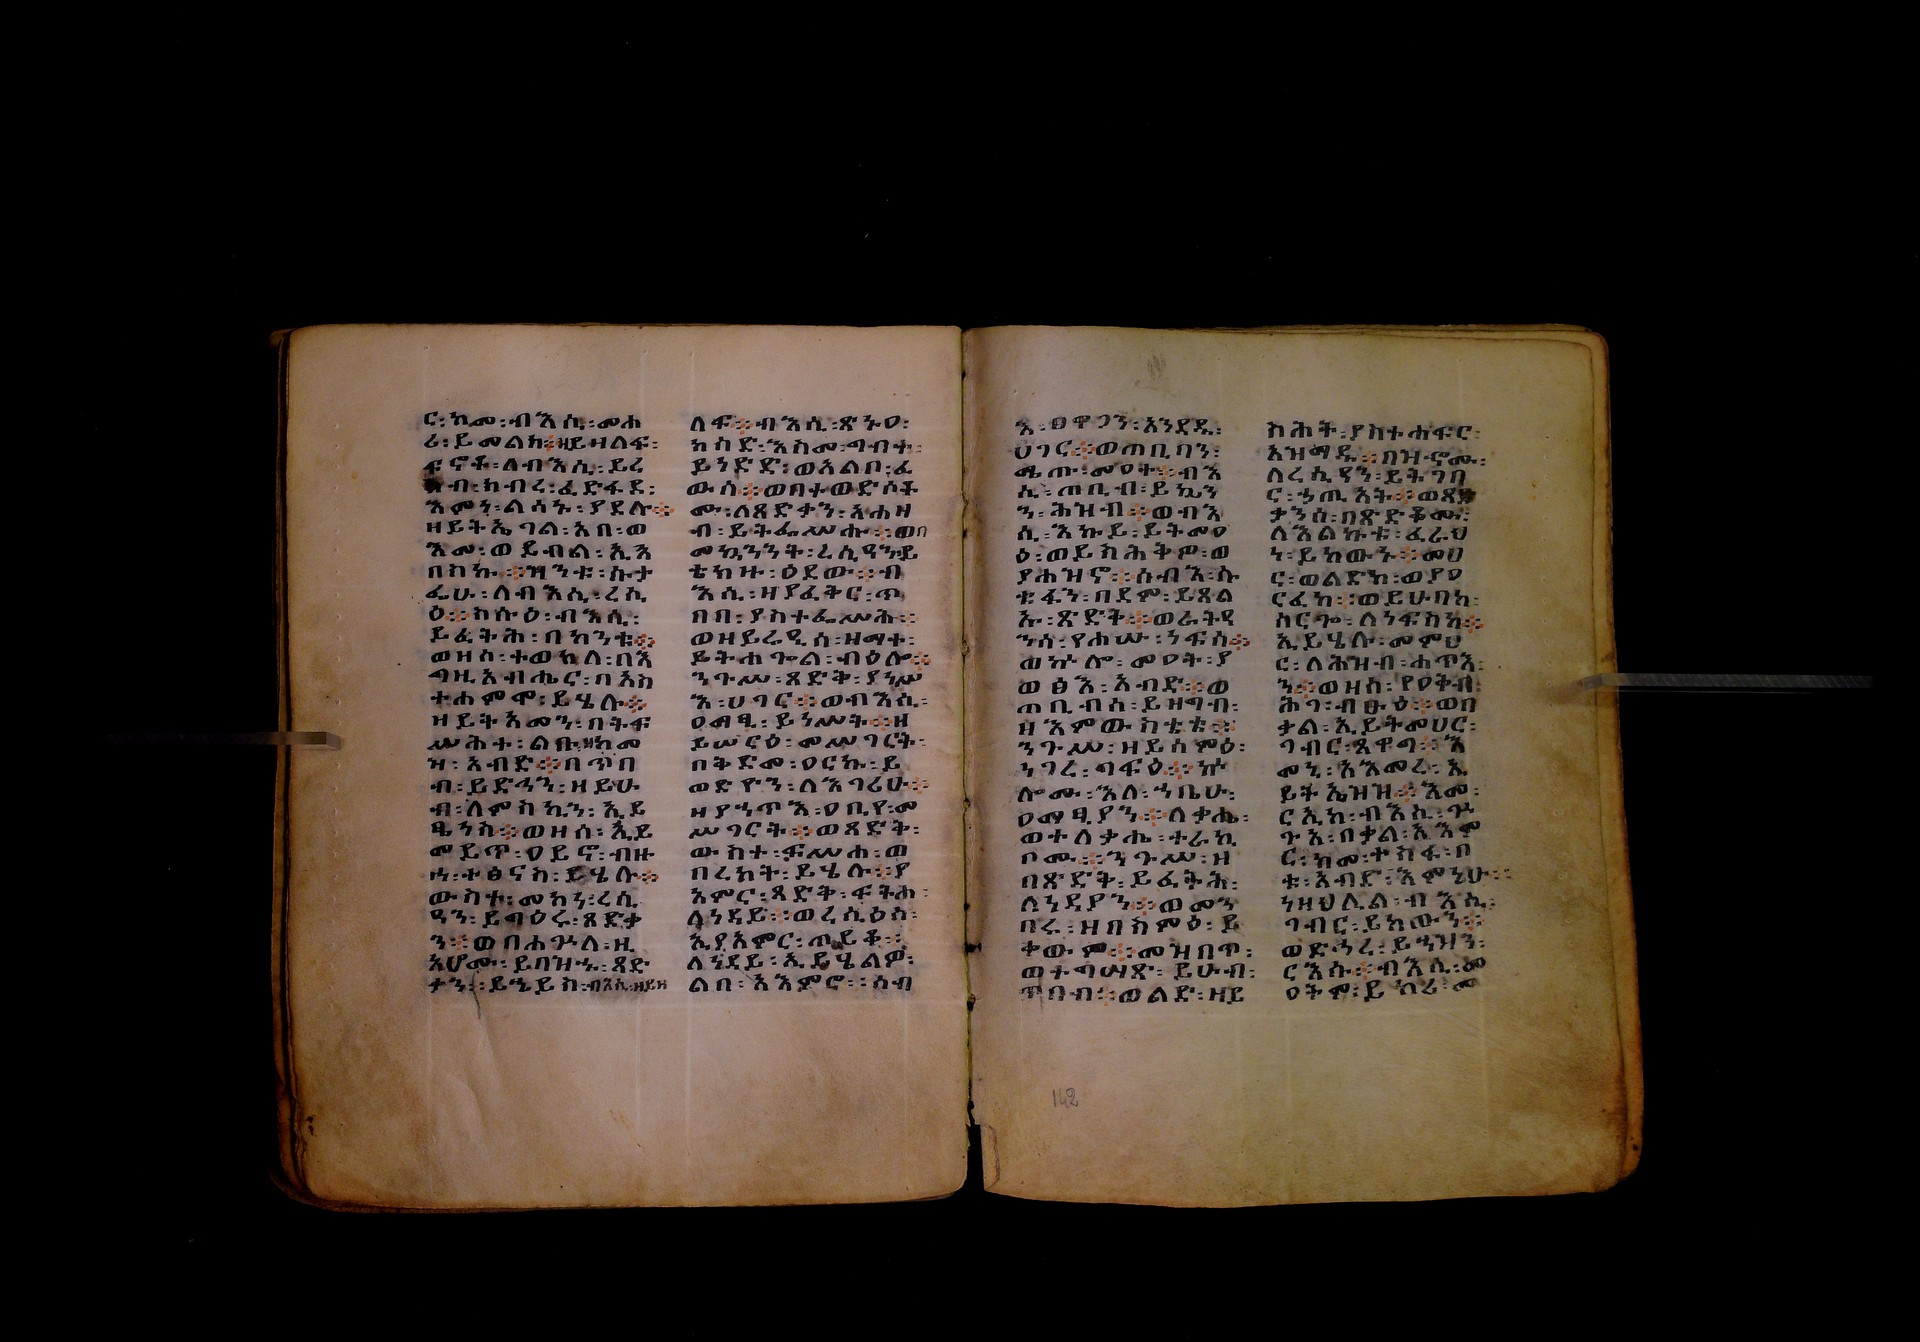 ር፡ ከመ፡ ብእሲ፡ መሐ
ሪ፡ ይመልክ፨ ዘይዘልፍ፡
ፍኖቶ፡ ለብእሲ፡ ይረ
ክብ፡ ክብረ፡ ፈድፋደ፡
እምነ፡ ልሳኑ፡ ያደሉ፨
ዘይትኤገል፡ አበ፡ ወ
እመ፡ ወይብል፡ ኢአ
በስኩ፨ ዝንቱ፡ ሱታ
ፌሁ፡ ለብእሲ፡ ረሲ
ዕ፨ ከሱዕ፡ ብእሲ፡
ይፈትሕ፡ በከንቱ፨
ወዘሰ፡ ተወከለ፡ በእ
ግዚአብሔር፡ በአስ
ተሐምሞ፡ ይሄሉ፨
ዘይትአመን፡ በትፍ
ሥሕተ፡ ልቡ፡ ከመ
ዝ፡ አብድ፨ በጥበ
ብ፡ ይድኅን፡ ዘይሁ
ብ፡ ለምስኪን፡ ኢይ
ፄነስ፨ ወዘሰ፡ ኢይ
መይጥ፡ ዐይኖ፡ ብዙ
ኃ፡ ተፅናስ፡ ይሄሉ፨
ውስተ፡ መከነ፡ ረሲ
ዓን፡ ይግዕሩ፡ ጻድቃ
ን፨ ወበሐጕለ፡ ዚ
አሆሙ፡ ይበዝኁ፡ ጻድ
ቃን፨ ይኄይስ፡ ብእሲ፡ ዘይዘ
ለፍ፨ ብእሲ፡ ጽኑዐ፡
ክሳድ፡ እስመ፡ ግብተ፡
ይነድድ፡ ወአልቦ፡ ፈ
ውሰ፨ ወበተወድሶት
ሙ፡ ለጻድቃን፡ አሕዛ
ብ፡ ይትፌሥሑ፨ ወበ
መኳንንት፡ ረሲዓን፡ ይ
ቴክዙ፡ ዕደው፨ ብ
እሲ፡ ዘያፈቅር፡ ጥ
በበ፡ ያስተፌሥሕ፨
ወዘይሬዒ፡ ዘማተ፡
ይትሐጐል፡ ብዕሎ፨
ንጉሥ፡ ጻድቅ፡ ያነሥ
እ፡ ሀገር፨ ወብእሲ፡
ዐማፂ፡ ይነሥት፨ ዘ
ይሠርዕ፡ መሥገርት፡
በቅድመ፡ ዐርኩ፡ ይ
ወድዮን፡ ለእገሪሁ፨
ዘያኀጥእ፡ ዐቢየ፡ መ
ሥገርት፨ ወጻድቅ፡
ውስተ፡ ፍሥሐ፡ ወ
በረከት፡ ይሄሉ፨ የ
አምር፡ ጻድቅ፡ ፍትሐ፡
ለነዳይ፨ ወረሲዕሰ፡
ኢያአምር፡ ጠይቆ፨
ለነዳይ፡ ኢይሄልዎ፡
ልበ፡ አእምሮ፨ ሰብ
እ፡ ፅዋጋን፡ አንደዱ፡
ሀገር፨ ወጠቢባን፡
ሜጡ፡ መዐት፨ ብእ
ሲ፡ ጠቢብ፡ ይኴን
ን፡ ሕዝብ፨ ወብእ
ሲ፡ እኩይ፡ ይትመዐ
ዕ፡ ወይስሕቅም፡ ወ
ያሐዝኖ፨ ሰብእ፡ ሱ
ቱፋን፡ በደም፡ ይጸል
ኡ፡ ጽድቅ፨ ወራትዓ
ንሰ፡ የሐሡ፡ ነፍሰ፨
ወኵሎ፡ መዐት፡ ያ
ወፅእ፡ አብድ፨ ወ
ጠቢብሰ፡ ይዘግብ፡
ዘእምውስቴቱ፨
ንጉሥ፡ ዘይሰምዕ፡
ነገረ፡ ግፍዕ፨ ኵ
ሎሙ፡ እለ፡ ኀቤሁ፡
ዐማፂያን፨ ለቃሔ፡
ወተለቃሔ፡ ተራከ
ቦሙ፨ ንጉሥ፡ ዘ
በጽድቅ፡ ይፈትሕ፡
ለነዳያን፨ ወመን
በሩ፡ ዘበስምዕ፡ ይ
ቀውም፨ መዝበጥ፡
ወተግሣጽ፡ ይሁብ፡
ጥበብ፨ ወልድ፡ ዘይ
ስሕት፡ ያስተሐፍር፡
አዝማዱ፨ በዝኖሙ፡
ለረሲዓን፡ ይትገበ
ር፡ ኃጢአት፨ ወጻድ
ቃንሰ፡ በጽድቆሙ፡
ለእልኩቱ፡ ፈራህ
ነ፡ ይከውኑ፨ መሀ
ር፡ ወልድከ፡ ወያዐ
ርፈከ፨ ወይሁበከ፡
ሰርጐ፡ ለነፍስከ፨
ኢይሄሉ፡ መምህ
ር፡ ለሕዝብ፡ ሐጥእ
ን፨ ወዘሰ፡ የዐቅብ፡
ሕገ፡ ብፁዕ፨ ወበ
ቃል፡ ኢይትመሀር፡
ገብር፡ ጸዋግ፨ እ
መኒ፡ አእመረ፡ ኢ
ይትኤዘዝ፨ እመ፡
ርኢከ፡ ብእሴ፡ ጕ
ጉአ፡ በቃል፡ አእም
ር፡ ከመ፡ ተስፋ፡ በ
ቱ፡ አብድ፡ እምኔሁ፨
ነዘህላል፡ ብእሲ፡
ገብር፡ ይከውን፨
ወድኅረ፡ ይኀዝን፡
ርእሱ፨ ብእሲ፡ መ
ዐትም፡ ይከሪ፡ መ
142